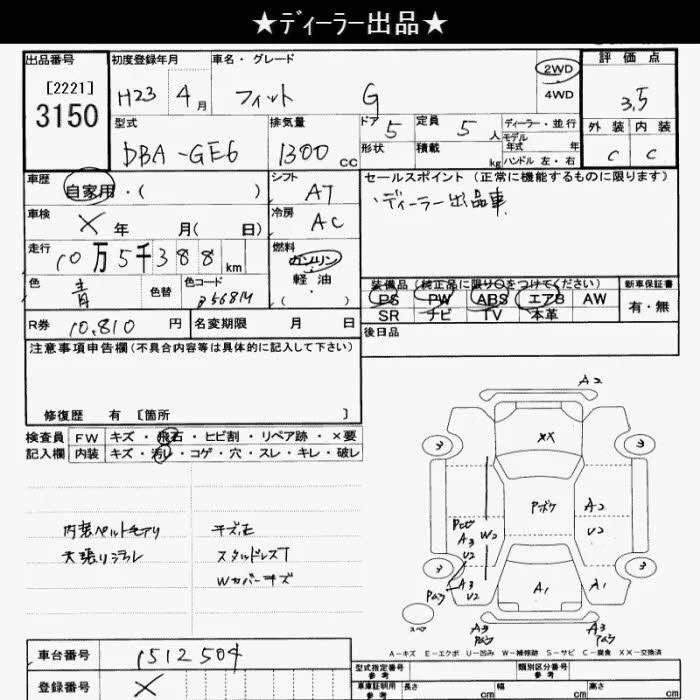 ★ディーラー出品★
出品番号
[2221]
3150
初度登録年月
H23 4月
車名・グレード
フィット G
2WD
4WD
評価点
3.5
外装 内装
C C
型式
DBA-GE6
排気量
1300cc
ドア 5
形状
定員 5人
積載 kg
ディーラー・並行
モデル年式 年
ハンドル 左・右
車歴
自家用・( )
シフト
AT
セールスポイント(正常に機能するものに限ります)
・ディーラー出品車
車検
X 年 月( 日)
冷房
AC
走行
10万5千388km
燃料
ガソリン
軽油
( )
色
青
色替
色コード
B568M
装備品(純正品に限り○をつけてください)
PS PW ABS エアB AW
SR ナビ TV 本革
新車保証書
有・無
R券 10,810円
名変期限 月 日
後日品
注意事項申告欄(不具合内容等は具体的に記入して下さい)
修復歴 有 [箇所 ]
検査員 FW キズ・飛石・ヒビ割・リペア跡・×要
記入欄 内装 キズ・汚レ・コゲ・穴・スレ・キレ・破レ
内装ベルトモアリ
天張リシラレ
キズ凹
スタッドレスT
Wカバーキズ
A2
3
XX
3
Pボケ
A2
U2
Pセド
A3
U2
W2
3
A3
U2
Pムケ
A1
A1
3
スペア
A3
Pムケ
A3
Pムケ
A-キズ E-エクボ U-凹み W-補修跡 S-サビ C-腐食 XX-交換済
車台番号
1512504
登録番号
X
型式指定番号
参考
類別区分番号
参考
車庫証明用
参考
長さ cm
幅 cm
高さ cm